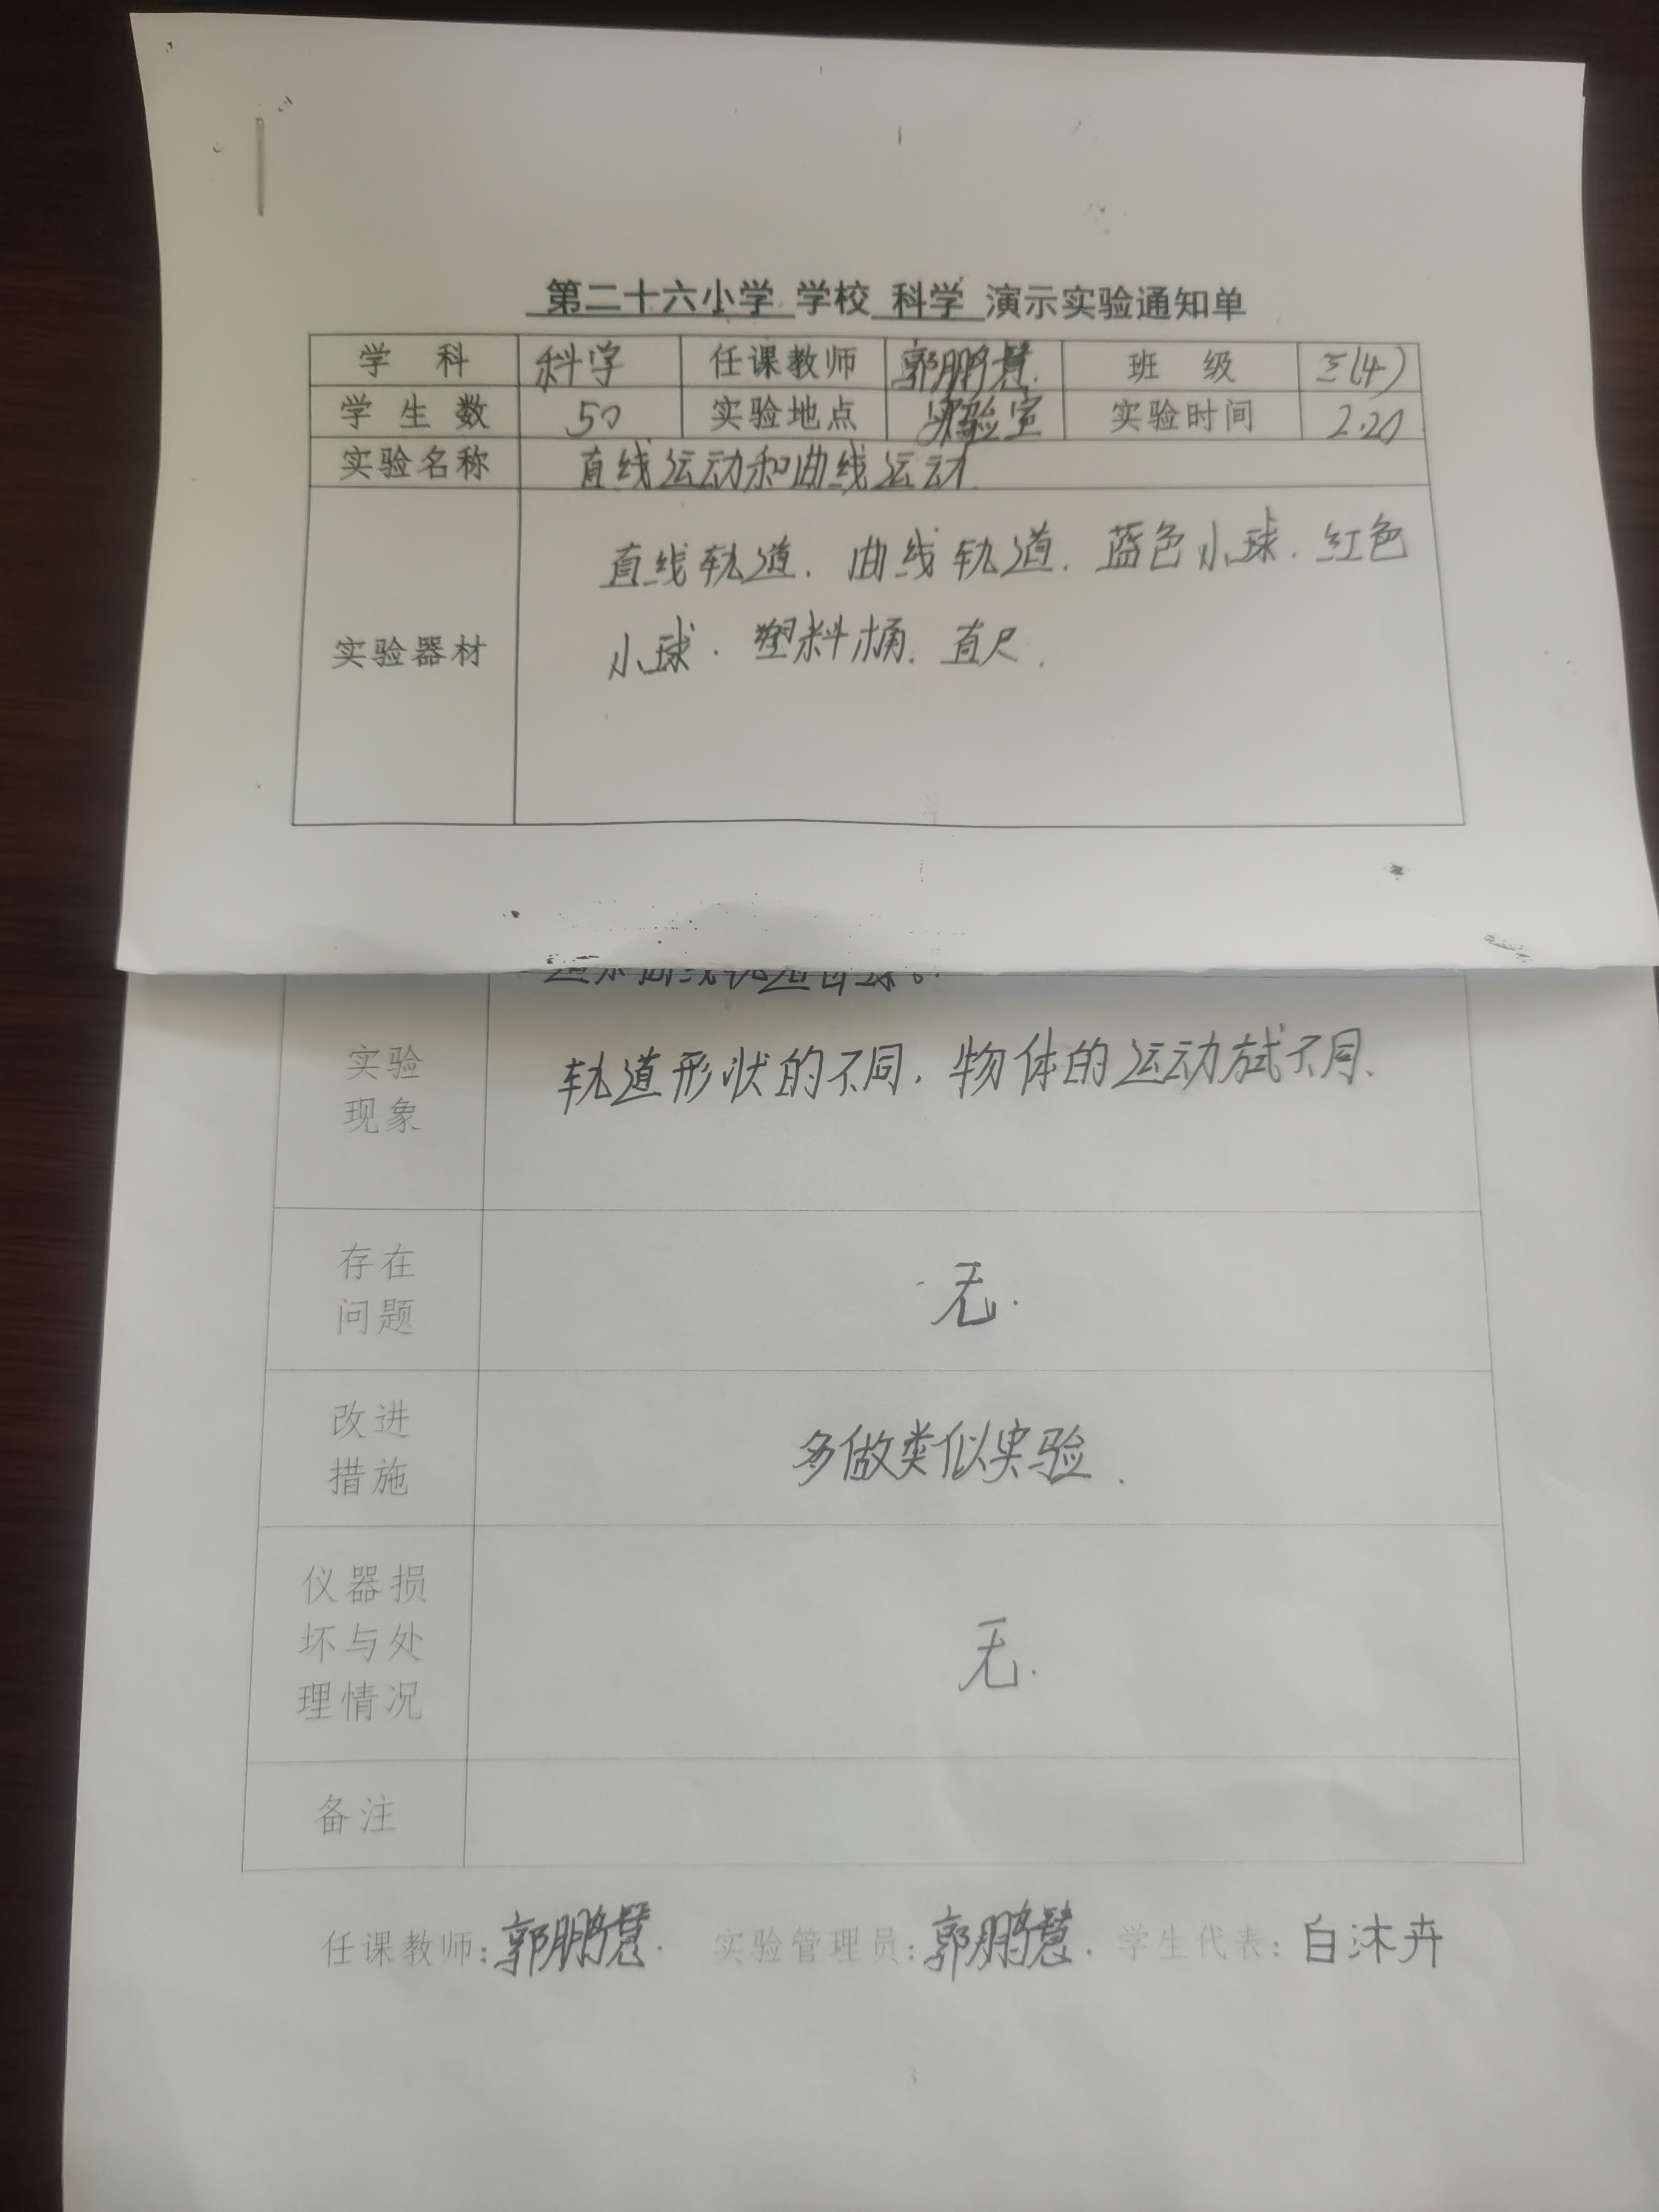 第二十六小学 学校 科学 演示实验通知单
学科 科学 任课教师 郭鹏慧. 班级 三(4)
学生数 50 实验地点 实验室 实验时间 2.20
实验名称 直线运动和曲线运动
直线轨道. 曲线轨道. 蓝色小球. 红色
实验器材 小球. 塑料桶. 直尺.
实验
现象
轨道形状的不同, 物体的运动方式不同、
存在
问题
无.
改进
措施
多做类似实验.
仪器损
坏与处
理情况
无.
备注
任课教师: 郭鹏慧. 实验管理员: 郭鹏慧. 学生代表: 白沐卉